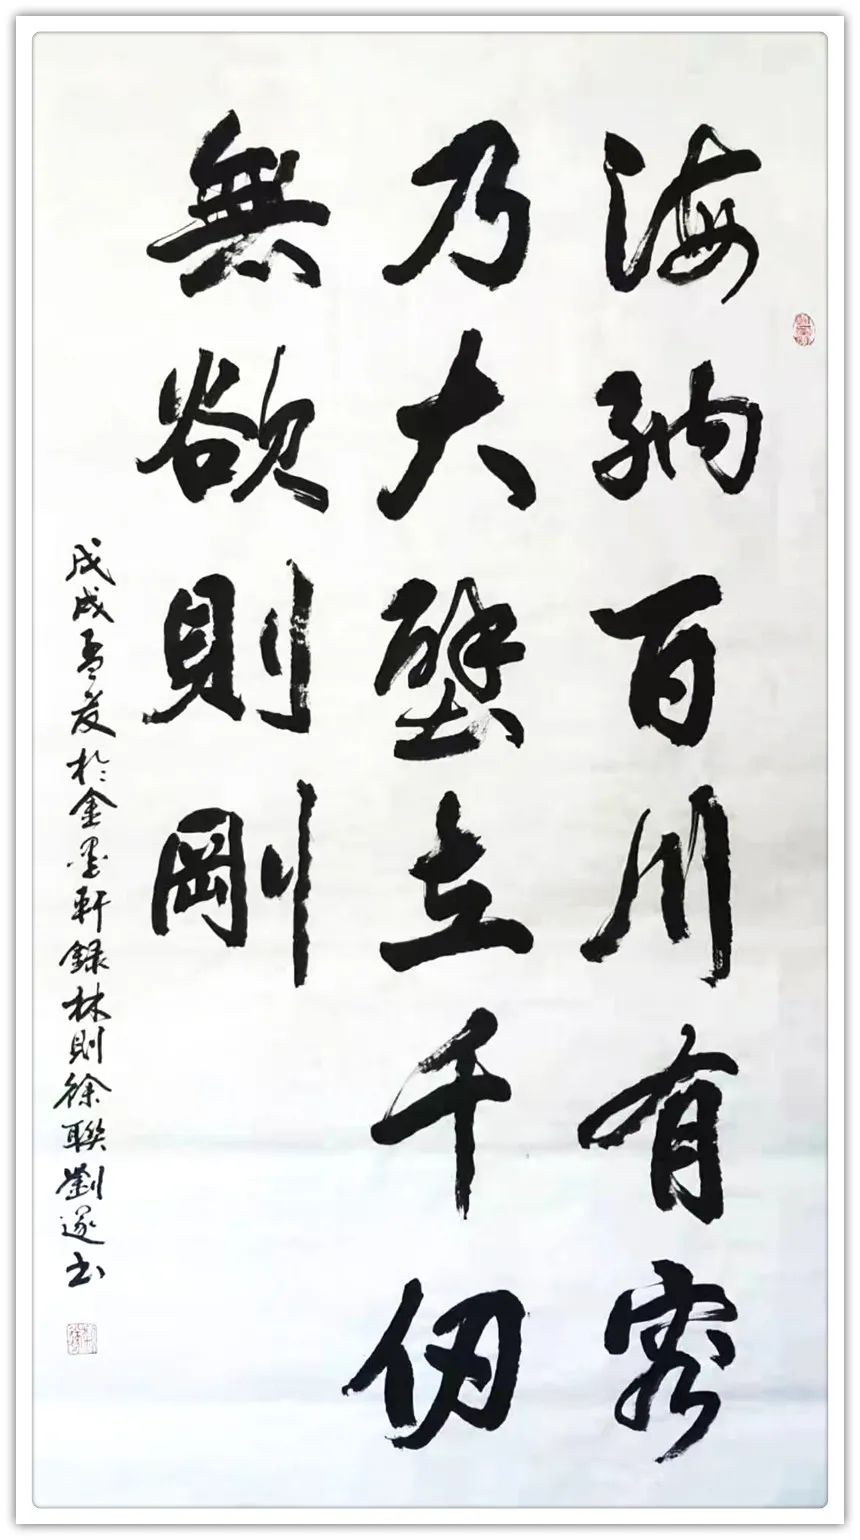 海納百川有容
乃大壁立千仞
無欲則剛
戊戌孟夏於金墨軒録林則徐聯劉遂书